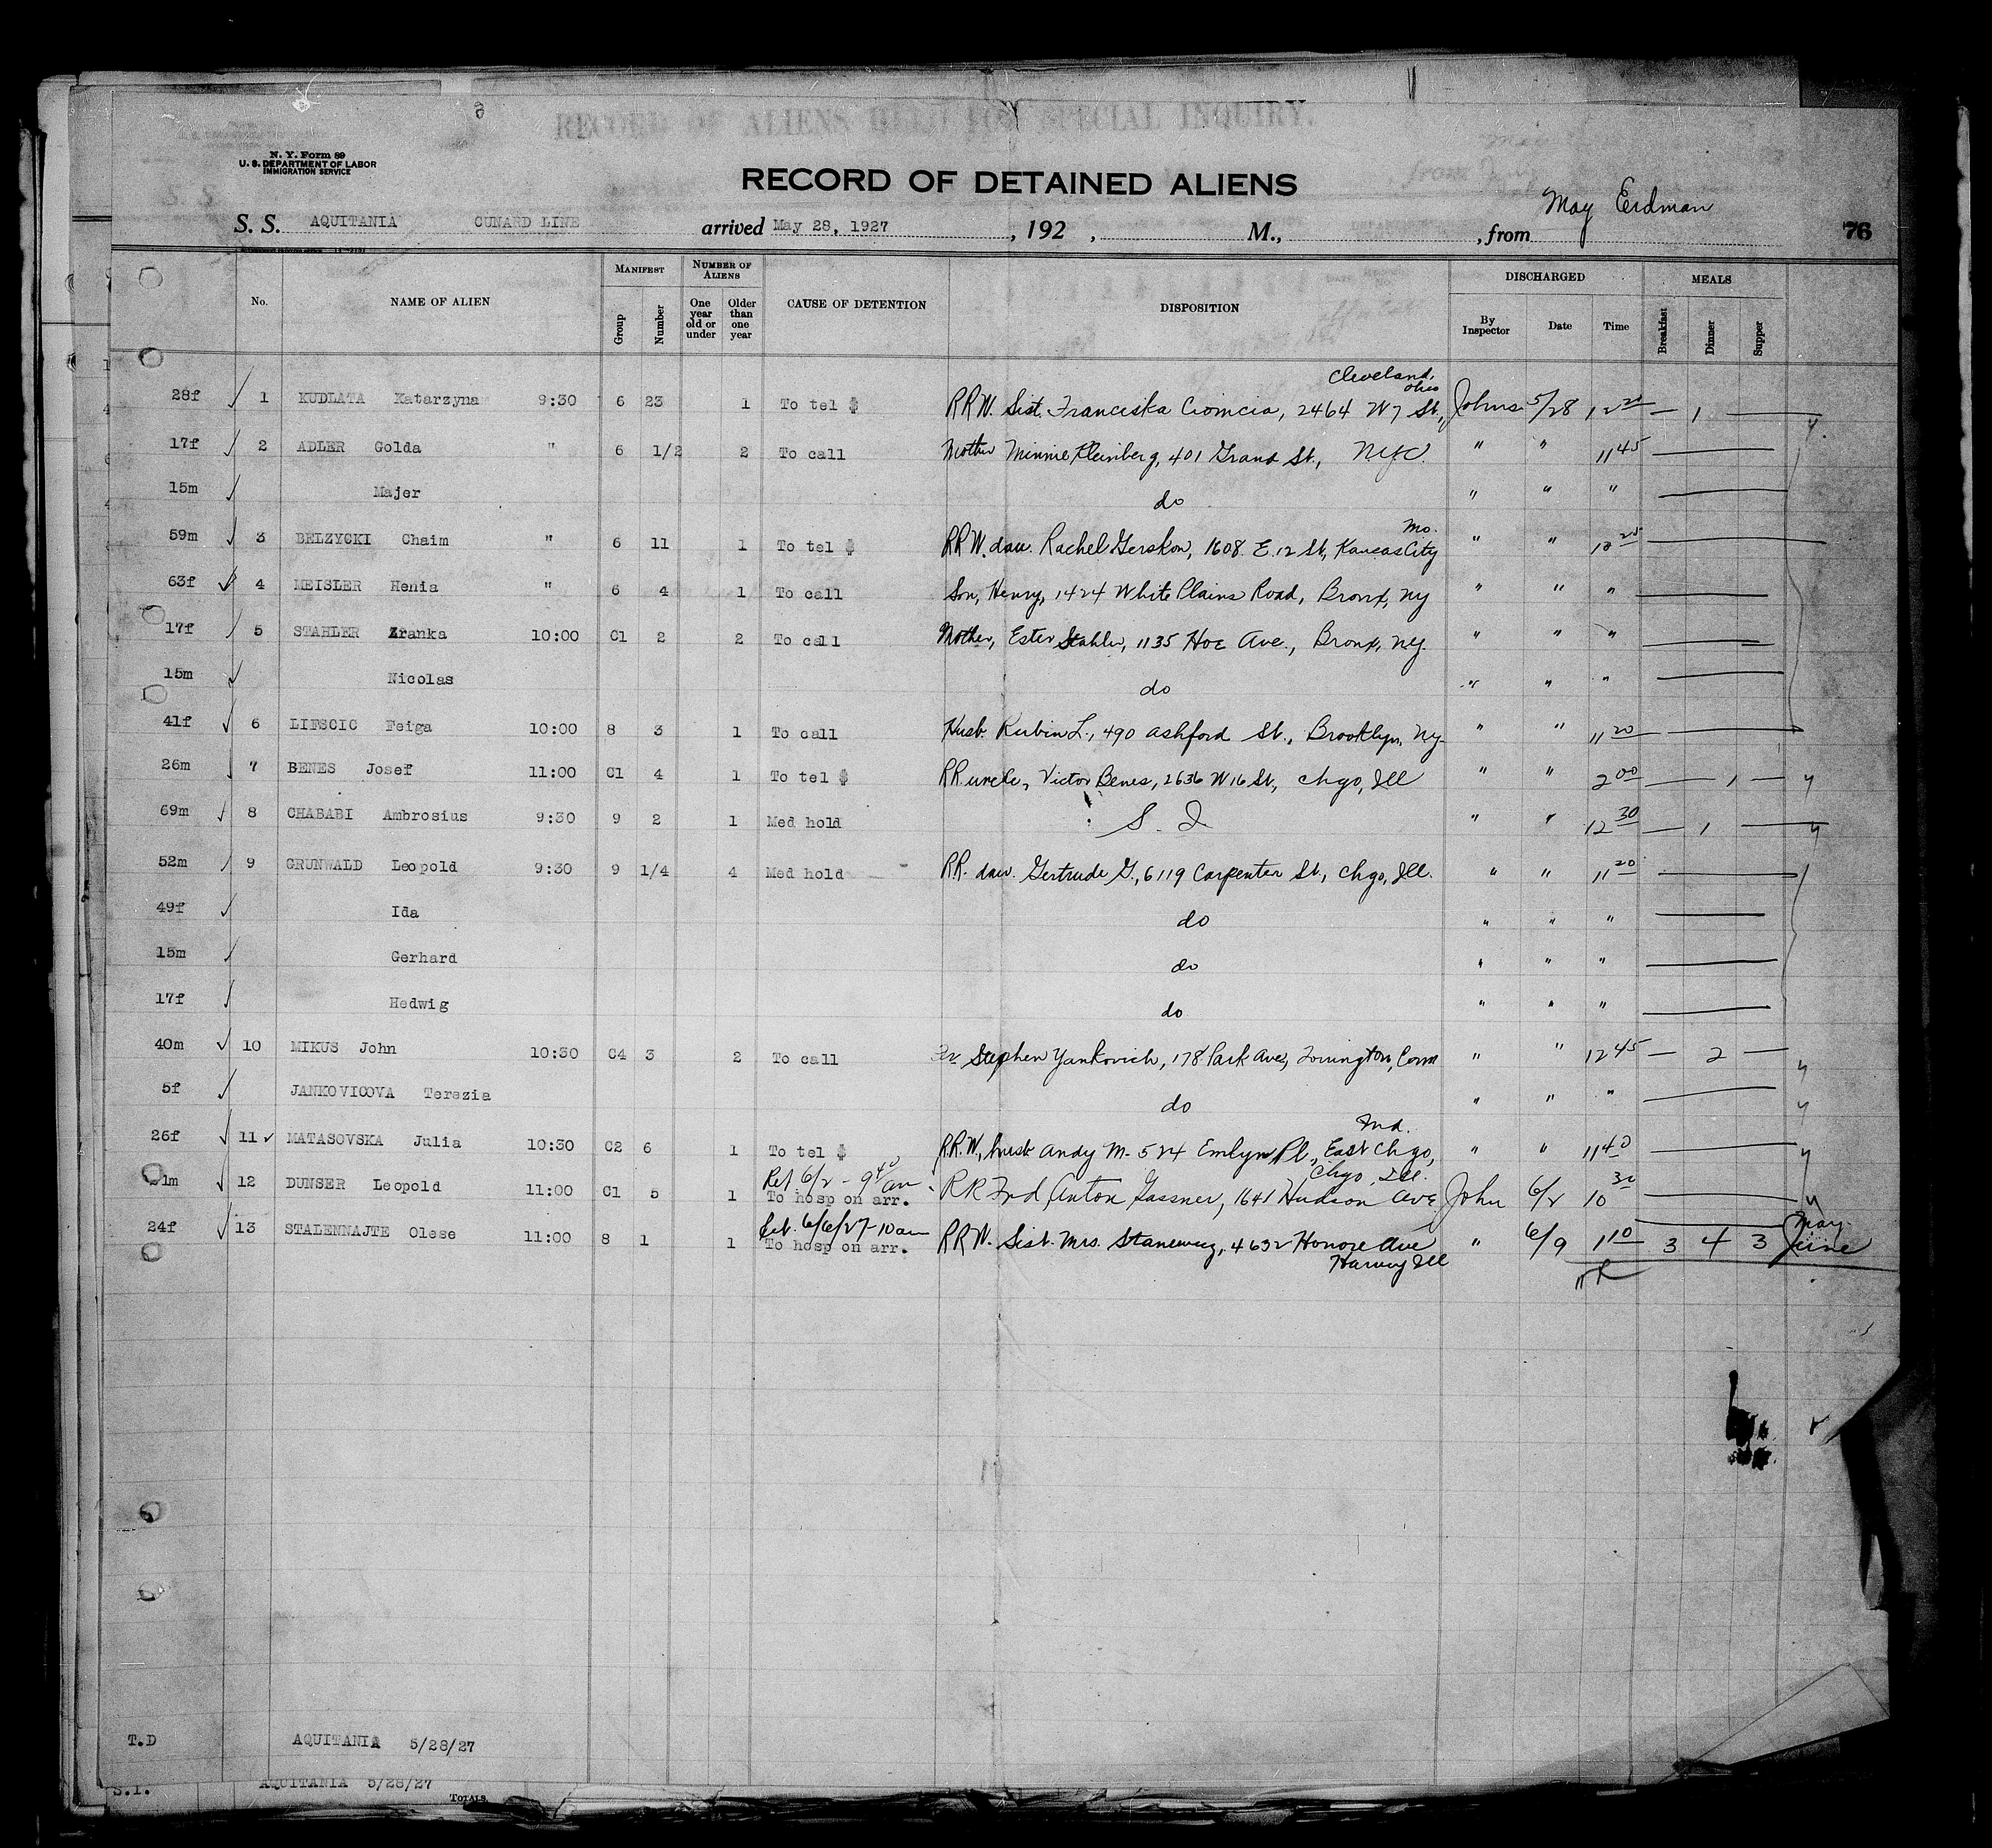 RECORD OF ALIENS HELD FOR SPECIAL INQUIRY.
N. Y. Form 89
U. S. DEPARTMENT OF LABOR
IMMIGRATION SERVICE
RECORD OF DETAINED ALIENS
May Erdman
S. S. AQUITANIA CUNARD LINE arrived May 28, 1927, 192 , M., , from 76
No. NAME OF ALIEN MANIFEST Group Number NUMBER OF ALIENS One year old or under Older than one year CAUSE OF DETENTION DISPOSITION DISCHARGED By Inspector Date Time MEALS Breakfast Dinner Supper
Cleveland, Ohio
28f 1 KUDLATA Katarzyna 9:30 6 23 1 To tel $ RRW. Sist. Franciska, 2464 W 7 St., Johns 5/28 12 20 — 1 —
17f 2 ADLER Golda " 6 1/2 2 To call Mother Minnie Kleinberg, 401 Grand St., NYC. " " 11 45
15m Majer do " " "
Mo.
59m 3 BELZYCKI Chaim " 6 11 1 To tel $ RRW. dau. Rachel Gerskon, 1608 E. 12 St, Kansas City " "
63f 4 MEISLER Henia " 6 4 1 To call Son, Henry, 1424 White Plains Road, Bronx, NY " " "
17f 5 STAHLER Zranka 10:00 C1 2 2 To call Mother, Ester Stahler, 1135 Hoe Ave., Bronx, NY. " " "
15m Nicolas do " " "
41f 6 LIFSCIC Feiga 10:00 8 3 1 To call Husb. Rubin L., 490 Ashford St., Brooklyn, NY. " " 11 20
26m 7 BENES Josef 11:00 C1 4 1 To tel $ RR uncle, Victor Benes, 2636 W 16 St., Chgo, Ill " " 2 00 — 1 —
69m 8 CHABABI Ambrosius 9:30 9 2 1 Med hold S. I " " 12 30 — 1 —
52m 9 GRUNWALD Leopold 9:30 9 1/4 4 Med hold RR. dau. Gertrude G., 6119 Carpenter St, Chgo, Ill. " " 11 20
49f Ida do " " "
15m Gerhard do " " "
17f Hedwig do " " "
40m 10 MIKUS John 10:30 C4 3 2 To call Stephen Yankovich, 178 Park Ave, Torrington, Conn " " 12 45 — 2 —
5f JANKOVICOVA Terezia do " " "
Ind.
26f 11 MATASOVSKA Julia 10:30 C2 6 1 To tel $ R.R.W, husb Andy M. 524 Emlyn Pl., East Chgo, " " 11 40
Ret 6/2 - 9 40 am Chgo, Ill.
1m 12 DUNSER Leopold 11:00 C1 5 1 To hosp on arr. RR Frd Anton Gassner, 1641 Hudson Ave John 6/2 10 30
Ret. 6/6/27 - 10 am May
24f 13 STALENNAJTE Olese 11:00 8 1 1 To hosp on arr. RRW. Sist. Mrs., 4632 Honore Ave " 6/9 1 10 3 4 3 June
Harvey Ill
T.D AQUITANIA 5/28/27
S.I. AQUITANIA 5/28/27
TOTALS